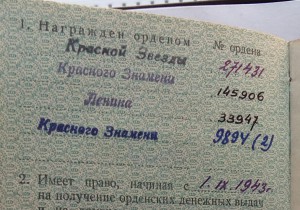 1. Награжден орденом № ордена
Красной Звезды 271431
Красного Знамени 145906
Ленина 33947
Красного Знамени 9894 (2)
2. Имеет право, начиная с 1.IX.1943г.
на получение орденских денежных выдач